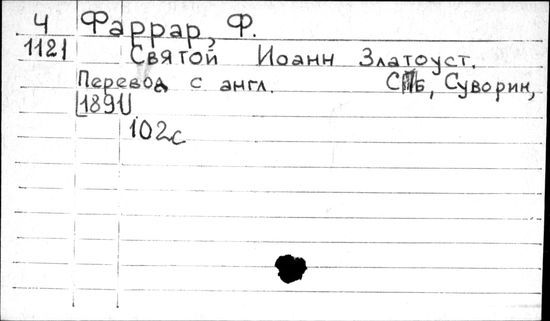 Ч Фаррар, Ф.
1121 Святой Иоанн Златоуст.
Перевод с англ. СПБ, Суворин,
[1891].
102с